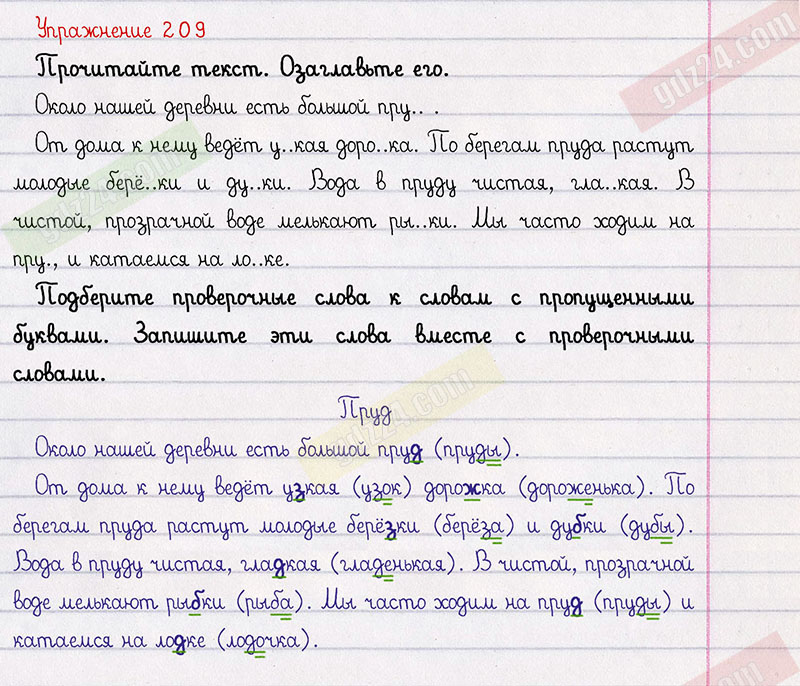 Упражнение 209
Прочитайте текст. Озаглавьте его.
Около нашей деревни есть большой пру.. .
От дома к нему ведёт у..кая доро..ка. По берегам пруда растут
молодые берё..ки и ду..ки. Вода в пруду чистая, гла..кая. В
чистой, прозрачной воде мелькают ры..ки. Мы часто ходим на
пру., и катаемся на ло..ке.
Подберите проверочные слова к словам с пропущенными
буквами. Запишите эти слова вместе с проверочными
словами.
Пруд
Около нашей деревни есть большой пруд (пруды).
От дома к нему ведёт узкая (узок) дорожка (дороженька). По
берегам пруда растут молодые берёзки (берёза) и дубки (дубы).
Вода в пруду чистая, гладкая (гладенькая). В чистой, прозрачной
воде мелькают рыбки (рыба). Мы часто ходим на пруд (пруды) и
катаемся на лодке (лодочка).
gdz24.com
gdz24.com
gdz24.com